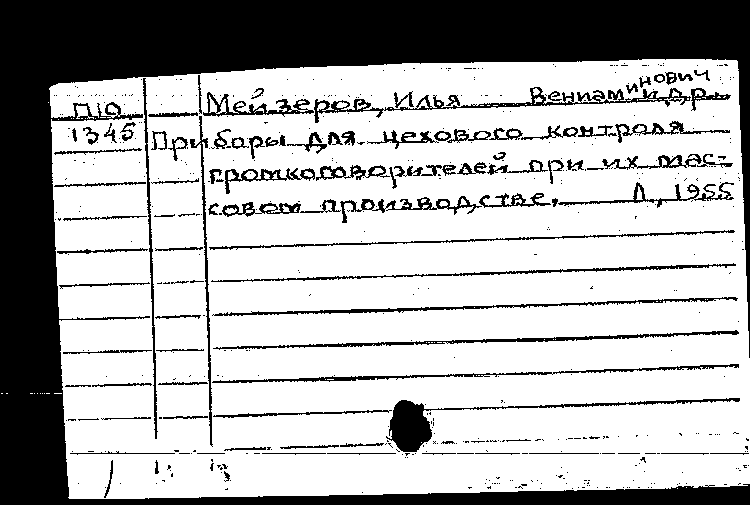 П10 Мейзеров, Илья Вениаминович и др.
1345 Приборы для цехового контроля
громкоговорителей при их мас-
совом производстве. Л, 1955